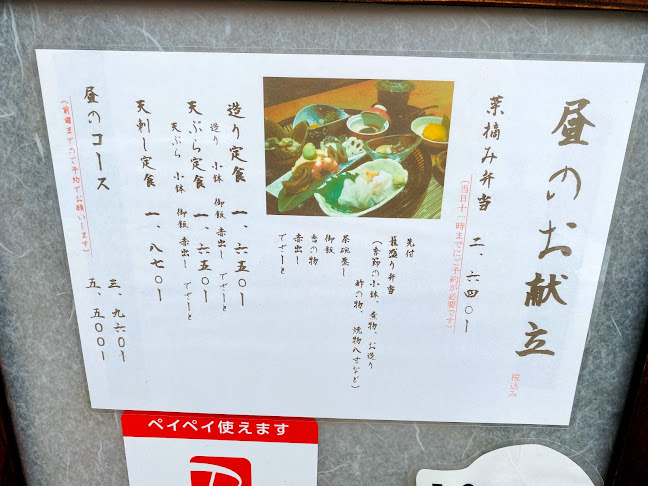 昼のお献立
税込み
菜摘み弁当 二、六四〇ー
(当日十一時までにご予約が必要です)
先付
籠盛り弁当
(季節の小鉢、煮物、お造り
酢の物、焼物八寸など)
茶碗蒸し
御飯
香の物
赤出し
でざーと
造り定食 一、六五〇ー
造り 小鉢 御飯 赤出し でざーと
天ぷら定食 一、六五〇ー
天ぷら 小鉢 御飯 赤出し でざーと
天刺し定食 一、八七〇ー
昼のコース 三、九六〇ー
五、五〇〇ー
(前日までのご予約でお願いします)
ペイペイ使えます